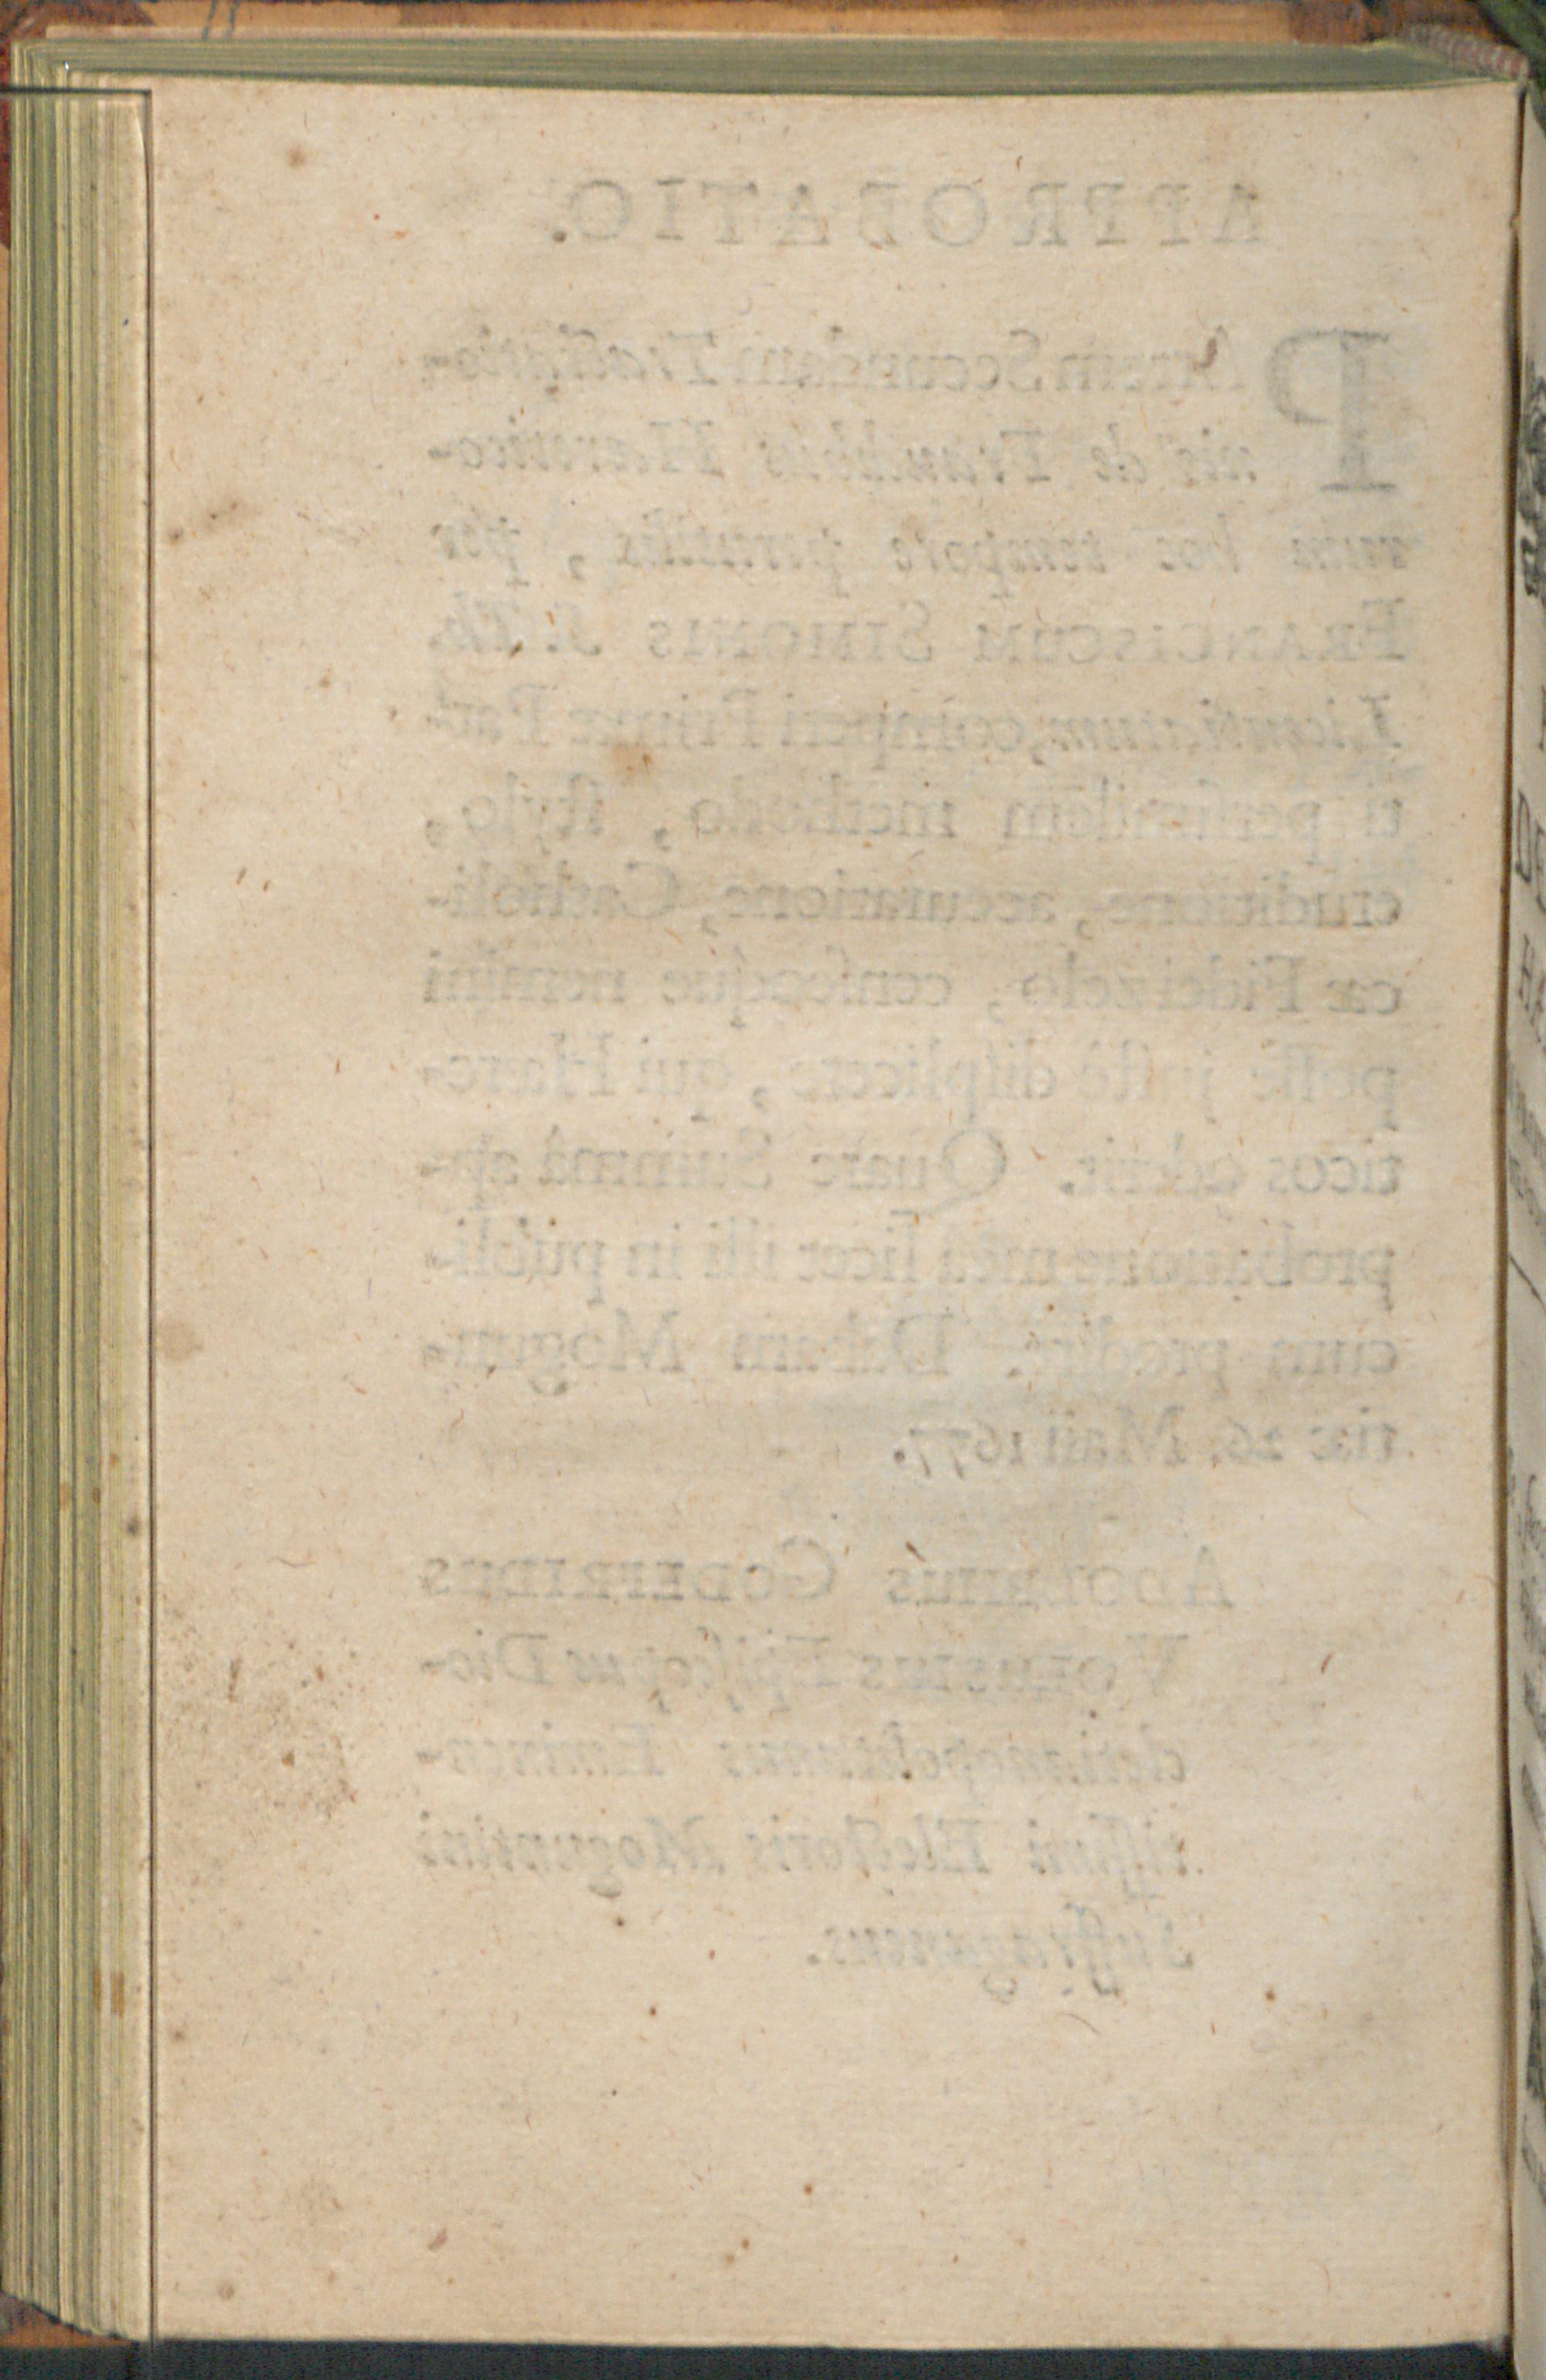 APPROBATIO.
PArtem Secundam Tractatio-
nis de Fraudibus Hæretico-
rum hoc tempore perutilis, per
FRANCISCUM SIMONIS S. Th.
Licentiatum, comperi Primæ Par-
ti persimilem methodo, ſtylo,
eruditione, accuratione, Catholi-
cæ Fidei zelo, cenſeoque nemini
poſſe juſtè diſplicere, qui Hære-
ticos oderit. Quare Summâ ap-
probatione meâ licet illi in publi-
cum prodire. Datum Mogun-
tiæ 26. Maii 1677.
ADOLPHUS GODEFRIDUS
VOLUSIUS Epiſcopus Dio-
cletianopolitanus Eminen-
tiſſimi Electoris Moguntini
Suffraganeus.